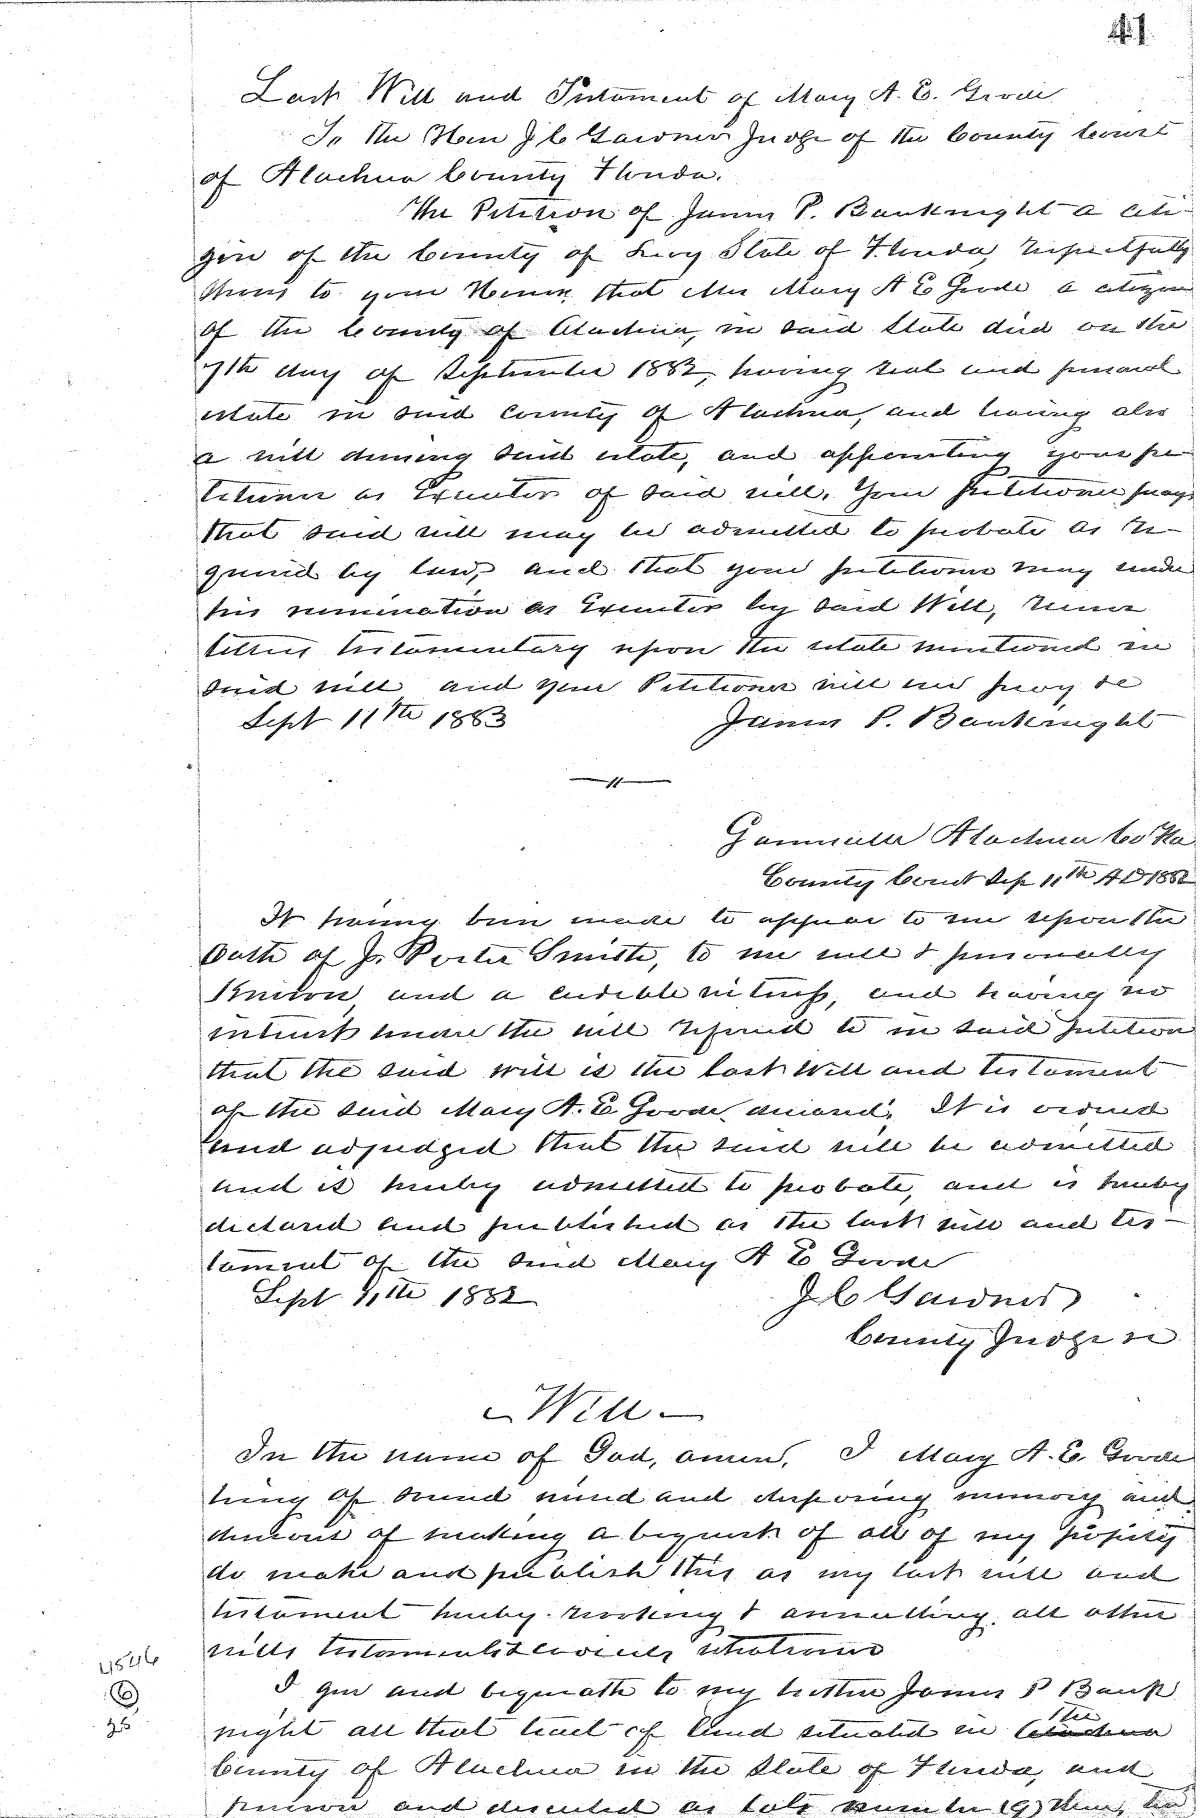 41
Last Will and Testament of Mary A. E. Goode
To the Hon J C Gardner Judge of the County Court
of Alachua County Florida.
The Petition of James P. Bauknight a citi-
zen of the County of Levy State of Florida, respectfully
shows to your Honor, that Mrs Mary A E Goode a citizen
of the County of Alachua, in said State died on the
7th day of September 1882, having real and personal
estate in said County of Alachua, and having also
a will devising said estate, and appointing your pe-
titioner as Executor of said will. Your petitioner prays
that said will may be admitted to probate as re-
quired by law, and that your petitioner may under
his nomination as Executor by said Will, receive
letters testamentary upon the estate mentioned in
said will, and your Petitioner will ever pray &c
Sept 11th 1883 James P. Bauknight
Gainesville Alachua Co Fla
County Court Sep 11th AD 1882
It having been made to appear to me upon the
Oath of J. Porter Smith, to me well & personally
Known, and a credible witness, and having no
interest under the will referred to in said petition
that the said will is the last Will and testament
of the said Mary A. E Goode deceased. It is ordered
and adjudged that the said will be admitted
and is hereby admitted to probate, and is hereby
declared and published as the last will and tes-
tament of the said Mary A E Goode
Sept 11th 1882 J C Gardner
County Judge
Will
In the name of God, amen, I Mary A. E. Goode
being of sound mind and disposing memory and
desirous of making a bequest of all of my property
do make and publish this as my last will and
testament hereby revoking & annulling all other
wills testaments & codicils whatsoever
I give and bequeath to my brother James P Bauk
night all that tract of land situated in the
County of Alachua in the State of Florida, and
known and described as lots number (9) Nine,
4546
6
35